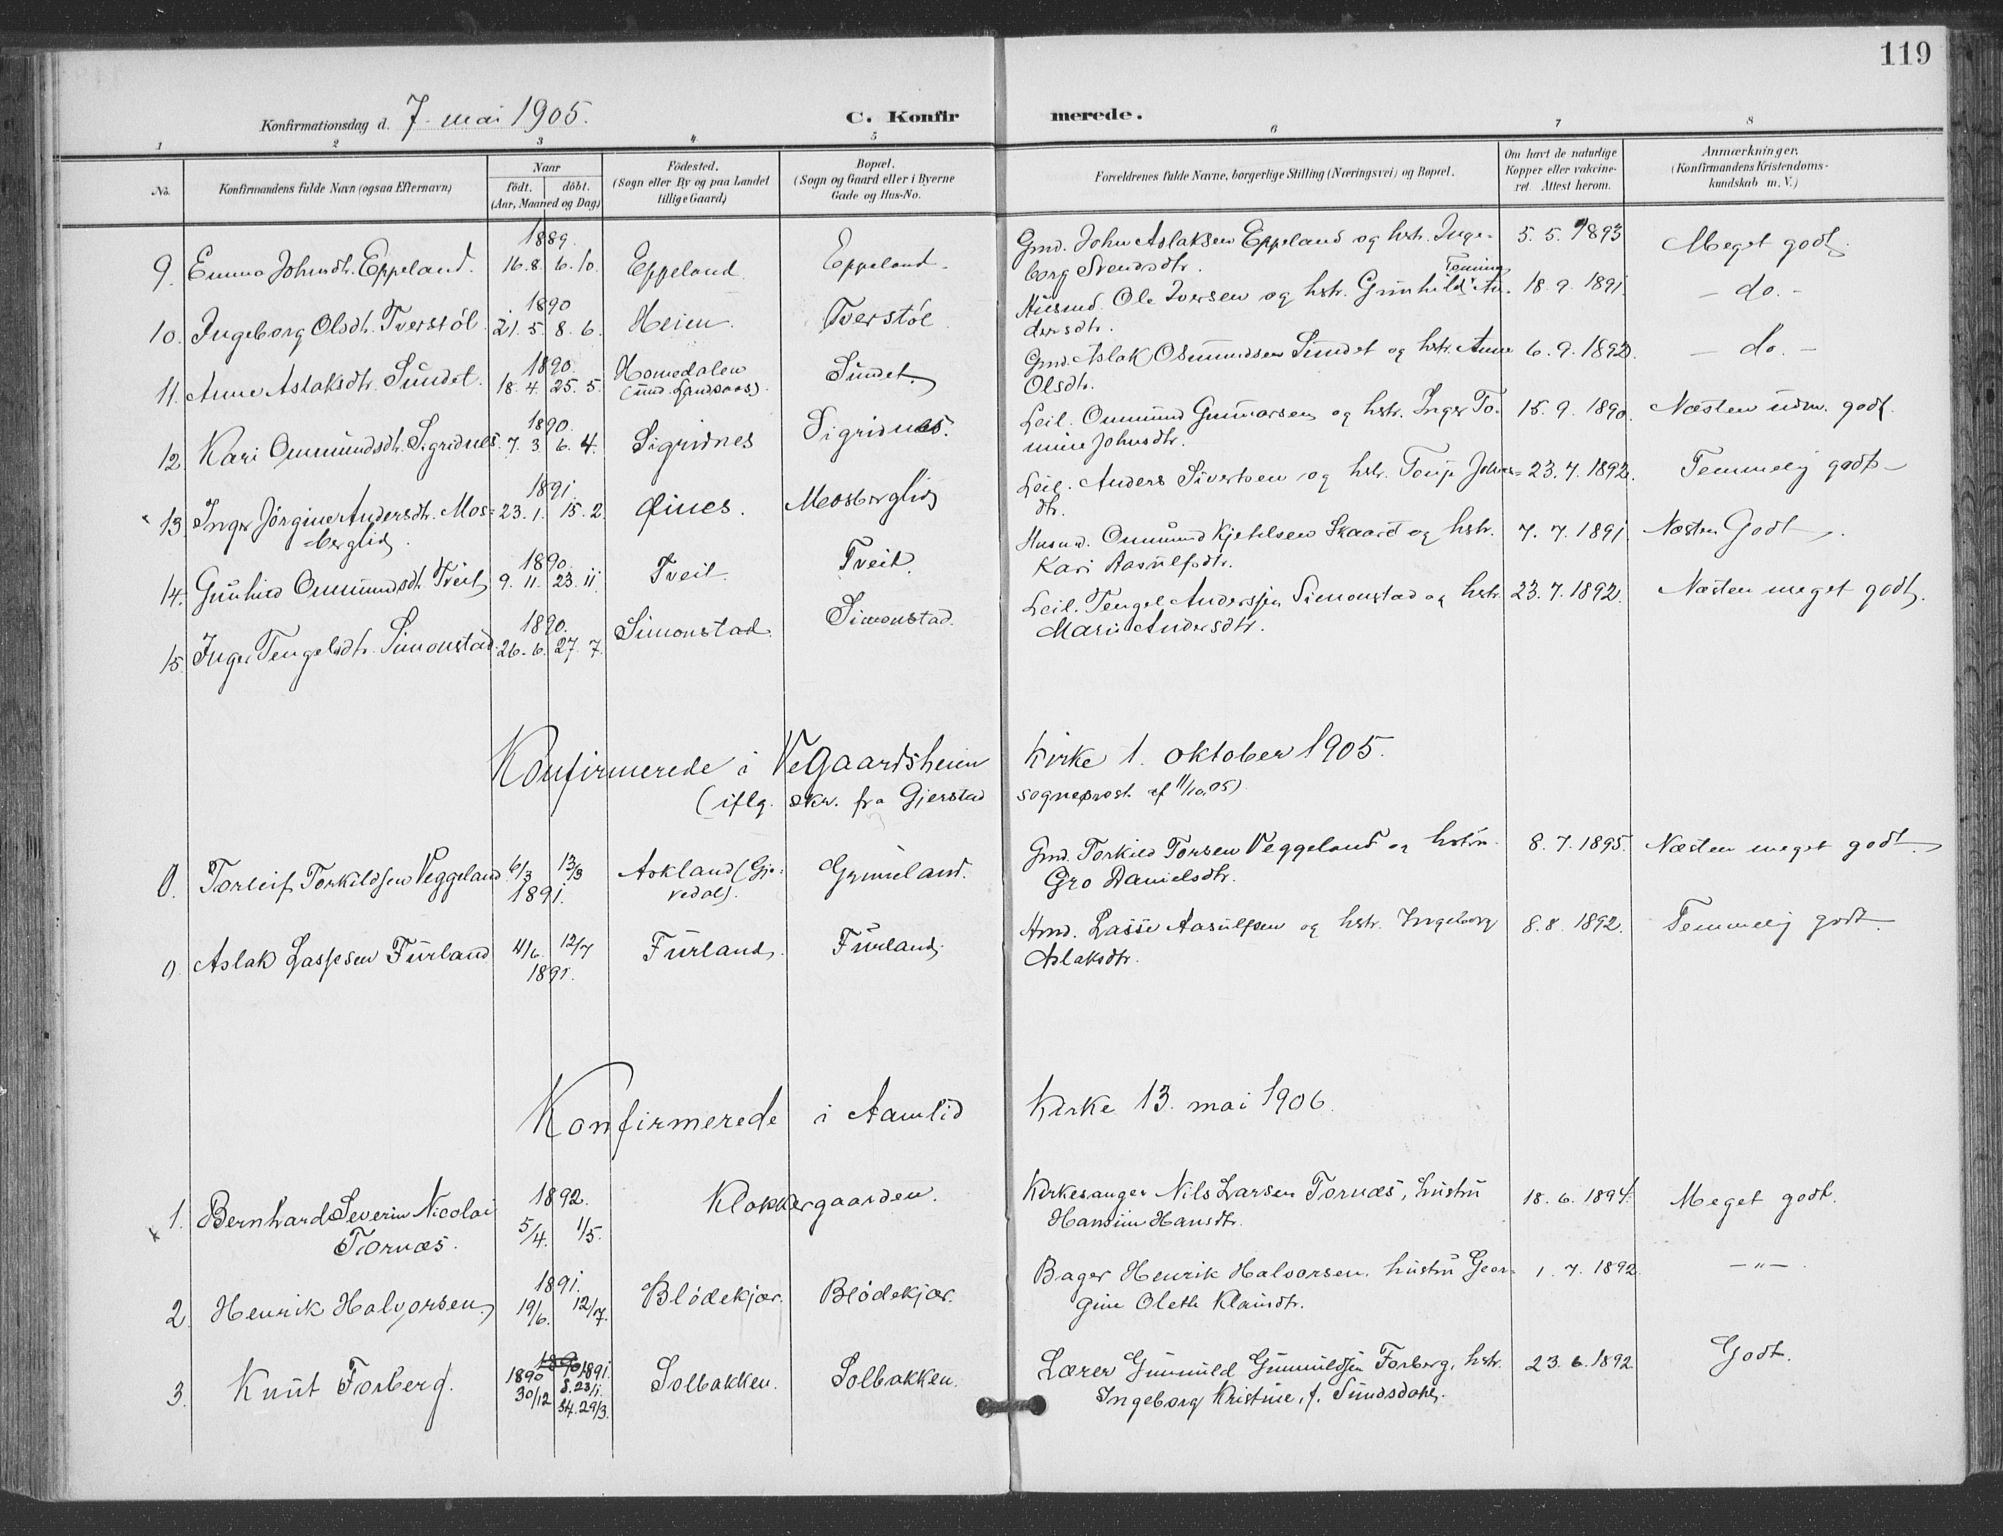 119
Konfirmationsdag d. 7. mai 1905.
C. Konfirmerede.
1 2 3 4 5 6 7 8
No. Konfirmandens fulde Navn (ogsaa Efternavn) Naar født. døbt. (Aar, Maaned og Dag) Födested. (Sogn eller By og paa Landet tillige Gaard) Bopæl. (Sogn og Gaard eller i Byerne Gade og Hus-No. Forældrenes fulde Navne, borgerlige Stilling (Næringsvei) og Bopæl. Om havt de naturlige Kopper eller vakcineret. Attest herom. Anmærkninger. (Konfirmandens Kristendomskundskab m. V.)
9. Emma Johnsdtr. Eppeland. 1889. 16. 8. 6. 10. Eppeland. Eppeland. Gmd. John Aslaksen Eppeland og hstr. Inge- 5. 5. 1893 Meget godt.
borg Svensdtr.
10. Ingeborg Olsdtr. Tverstøl 1890 21. 5. 8. 6. Heien. Tverstøl Husmd. Ole Iversen og hstr. Gunhild Tomine An- 18. 9. 1891. - do. -
dersdtr.
11. Anne Aslaksdtr. Sundet. 1890. 18. 4. 25. 5. Homedalen (und. Landsaas). Sundet. Gmd. Aslak Osmundsen Sundet og hstr. Anne 6. 9. 1892. - do. -
Olsdtr.
12. Kari Ommundsdtr. Sigridnes. 1890. 7. 3. 6. 4. Sigridnes Sigridnes. Leil. Ommund Gunnarsen og hstr. Inger To- 15. 9. 1890. Næsten udm. godt.
mine Johnsdtr.
13. Inger Jørgine Andersdtr. Mos- 1891. 23. 1. 15. 2. Øines. Mosberglid Leil. Anders Sivertsen og hstr. Johns- 23. 7. 1892. Temmelig godt
berglid. dtr.
14. Gunhild Ommundsdtr. Tveit 1890. 9. 11. 23. 11. Tveit. Tveit. Husmd. Ommund Kjetilsen Skaard og hstr. 7. 7. 1891. Næsten Godt.
Kari Aasulfsdtr.
15. Inger Tengelsdtr. Simonstad. 1890. 26. 6. 27. 7. Simonstad. Simonstad. Leil. Tengel Anderssen Simonstad og hstr. 23. 7. 1892. Næsten meget godt.
Marie Andersdtr.
Konfirmerede i Vegaardsheien Kirke 1. oktober 1905.
(iflg. skr. fra Gjerstad sogneprest af 11/10 05)
0. Torleif Torkildsen Veggeland 6/3 13/3 1891. Askland (Gjøvedal). Grimeland. Gmd. Torkild Torsen Veggeland og hstru 8. 7. 1895. Næsten meget godt.
Gro Danielsdtr.
0. Aslak Lassesen Furland 4/6. 12/7 1891. Furland. Furland. Hmd. Lasse Aasulfsen og hstr. Ingeborg 8. 8. 1892. Temmelig godt.
Aslaksdtr.
Konfirmerede i Aamlid Kirke 13. mai 1906.
1. Bernhard Severin Nicolai 1892. 5/4. 1/5. Klokkergaarden. Kirkesanger Nils Larsen Tornæs, hustru 18. 6. 1894. Meget godt.
Tornæs. Hansine Hansdtr.
2. Henrik Halvorsen. 1891. 19/6. 12/7. Blødekjær. Blødekjær. Bager Henrik Halvorsen, hustru Geor- 1. 7. 1892 -"-
gine Olethe
3. Knut Forberg. 1890 30/12 1891. 29/3. Solbakken. Solbakken. Lærer Gunnuld Gunnuldsen Forberg, hstr. 23. 6. 1892 Godt.
Ingeborg Kristine, f. Sundsdahl.